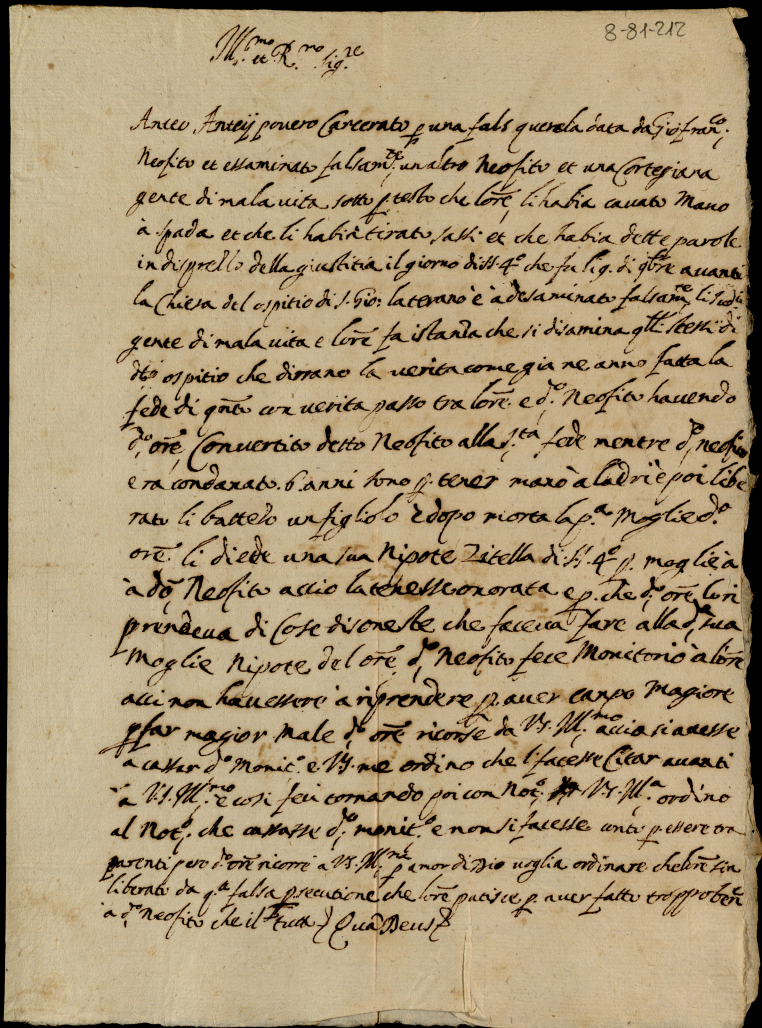 8-81-212
Ill.mo et R.mo Sig.re
Anteo Anteij povero Carcerato p una fals querela data da Giofran.co
Neofito et essaminato falsam.te un altro Neofito et una Cortegiana
gente di mala vita sotto p testo che l'ore li habia cavato Mano
à spada et che li habia tirato sassi et che habia dette parole
in disprello della giustitia il giorno di SS. 4.o che fu li 9. di 9bre avanti
la Chiesa del ospitio di S. Gio: laterano è à desaminato falsam.te li
gente di mala vita e l'ore fa istanza che si disamina qlli stessi di
dto ospitio che dirrano la verita come gia ne anno fatta la
fede di qnto con verita passo tra l'ore e d.o Neofito havendo
d.o ore Convertito detto Neofito alla S.ta fede mentre d.o neofito
era condanato 6 anni sono p. tener mano à ladri è poi libe
rato li batteso un figliolo è dopo morta la p.a Moglie d.o
ore li diede una sua Nipote Zitella di SS. 4.o p. moglie à
à do Neofito accio la tenesse onorata e p. che d.o ore lo ri
prendeva di Cose disoneste che faceva fare alla d.a sua
Moglie Nipote del ore d.o Neofito fece Monitorio à l'ore
acci non havessere à riprendere p. aver campo Magiore
p far magior male d.o ore ricorse da V.S. Ill.mo accio si avesse
a cassar d.o Monit.o e V.S. me ordino che li facesse Citar avanti
à V.S. Ill.mo e cosi feci tornando poi con Not.o V.S. Ill.a ordino
al Not.o che cassasse d.o monit.o e non si facesse conto p. essere tra
parenti pero d.o ore ricorre à V.S. Ill.ma p amor di Dio voglia ordinare che l'ore sia
liberato da q.a falsa p secutione che l'ore patisce p. aver fatto troppo bene
à d.o Neofito che il tutto Qua Deus